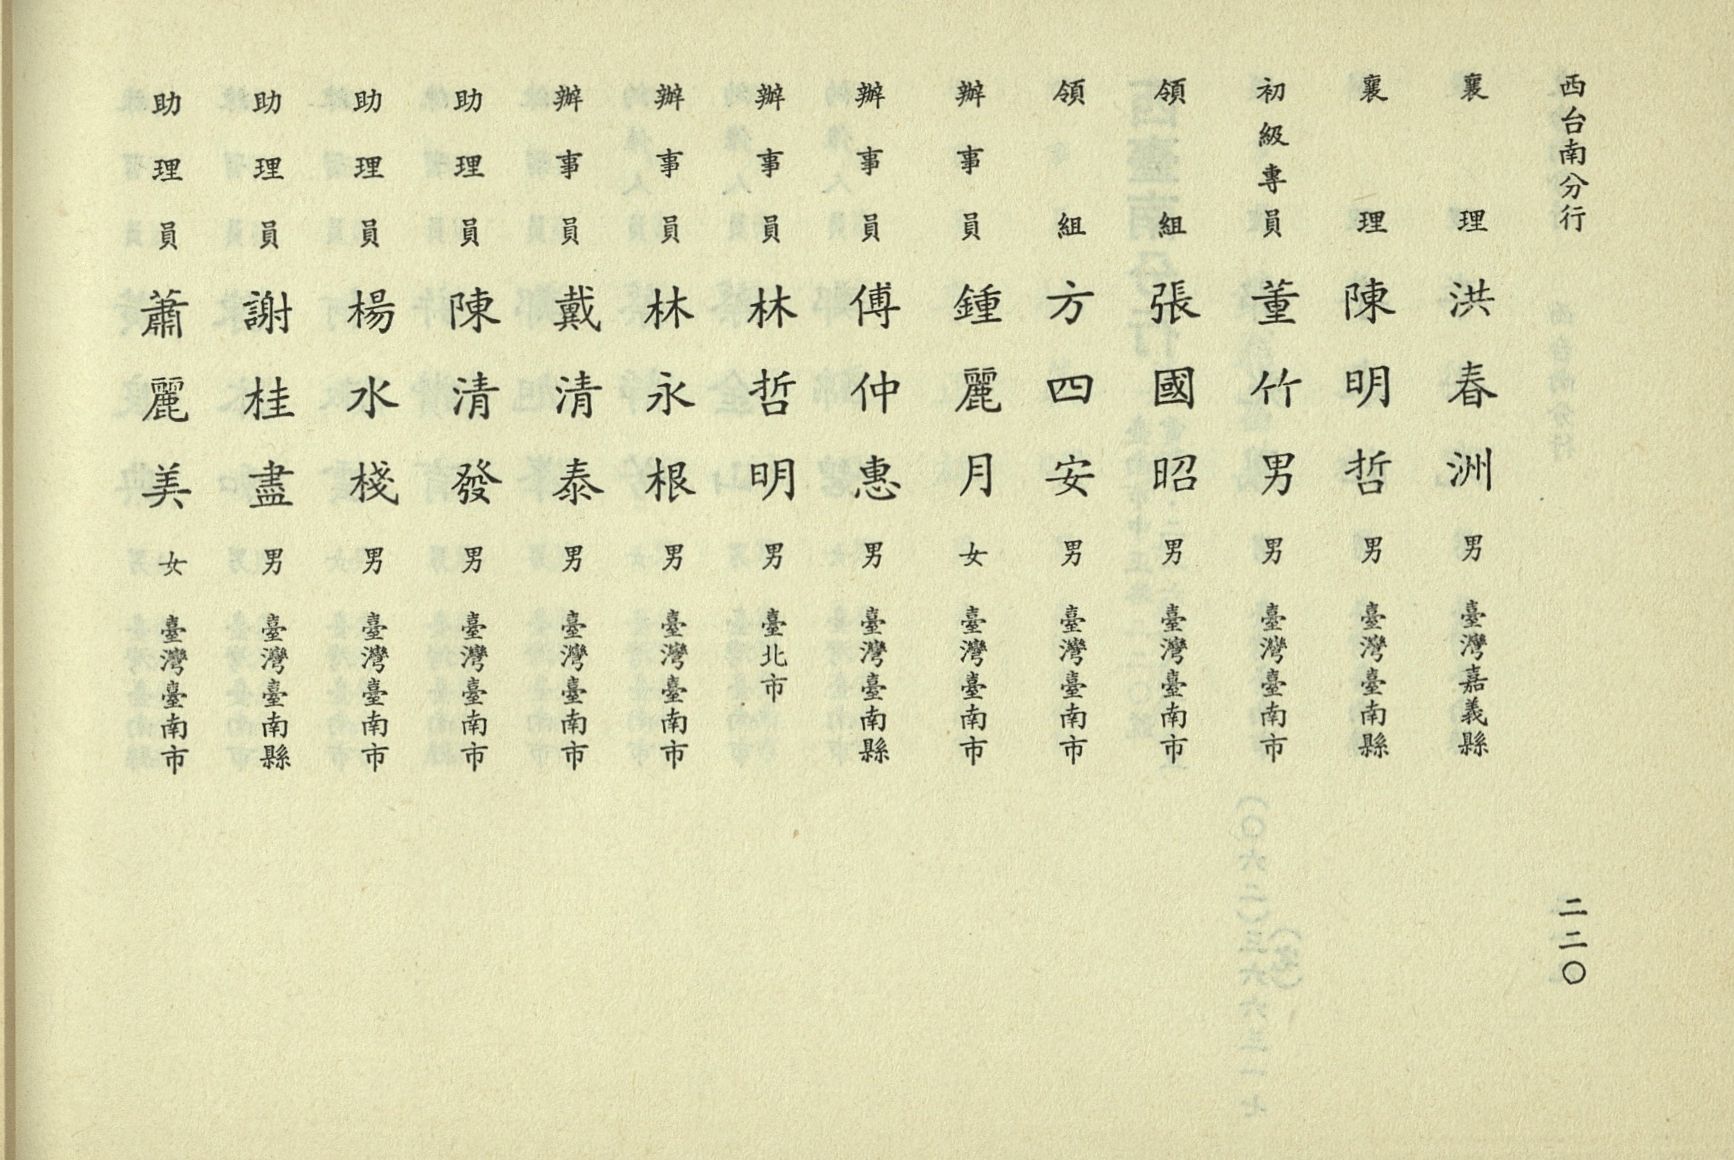 西台南分行
二二〇
襄理 洪春洲 男 臺灣嘉義縣
襄理 陳明哲 男 臺灣臺南縣
初級專員 董竹男 男 臺灣臺南市
領組 張國昭 男 臺灣臺南市
領組 方四安 男 臺灣臺南市
辦事員 鍾麗月 女 臺灣臺南市
辦事員 傅仲惠 男 臺灣臺南縣
辦事員 林哲明 男 臺北市
辦事員 林永根 男 臺灣臺南市
辦事員 戴清泰 男 臺灣臺南市
助理員 陳清發 男 臺灣臺南市
助理員 楊水棧 男 臺灣臺南市
助理員 謝桂盡 男 臺灣臺南縣
助理員 蕭麗美 女 臺灣臺南市